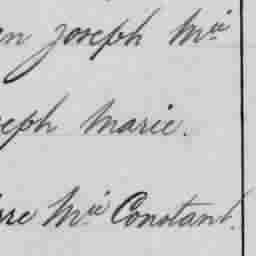 en joseph Mie
seph Marie.
rre Mie Constant.